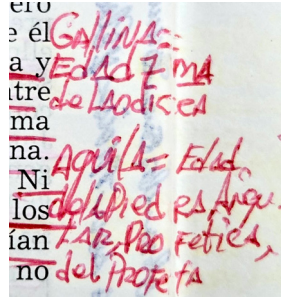 ero
e él
a y
tre
ma
na.
Ni
los
ían
no
GAllINA=
EdAd 7 mA
de LAodisea
Aquila= Edad
de la Piedra, Angu.
LAR, Profetica,
del Profeta